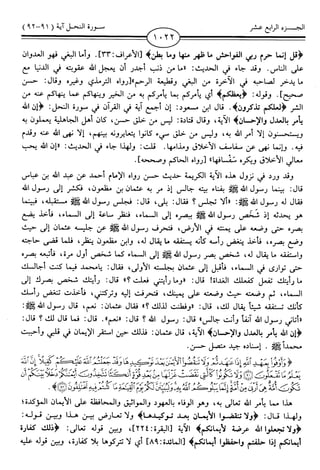 الجـــزء الرابع عشر
١٠٢٢
سورة النحل آية (٩١-٩٢)
﴿قل إنما حرم ربي الفواحش ما ظهر منها وما بطن﴾ [الأعراف:٣٣]. وأما البغي فهو العدوان
على الناس. وقد جاء في الحديث: «ما من ذنب أجدر أن يعجل الله عقوبته في الدنيا مع
ما يدخر لصاحبه في الآخرة من البغي وقطيعة الرحم»(رواه الترمذي وغيره وقال: حسن
صحيح). وقوله: ﴿يعظكم﴾ أي يأمركم بما يأمركم به من الخير وينهاكم عما ينهاكم عنه من
الشر ﴿لعلكم تذكرون﴾. قال ابن مسعود: إن أجمع آية في القرآن في سورة النحل: ﴿إن الله
يأمر بالعدل والإحسان﴾ الآية، وقال قتادة: ليس من خلق حسن، كان أهل الجاهلية يعملون به
ويستحسنون إلا أمر الله به، وليس من خلق سيء كانوا يتعايرونه بينهم، إلا نهى الله عنه وقدم
فيه. وإنما نهى عن سفاسف الأخلاق ومذامها. قلت: ولهذا جاء في الحديث: «إن الله يحب
معالي الأخلاق ويكره سفسافها» (رواه الحاكم وصححه).
وقد ورد في نزول هذه الآية الكريمة حديث حسن رواه الإمام أحمد عن عبد الله بن عباس
قال: بينما رسول الله ﷺ بفناء بيته جالس إذ مر به عثمان بن مظعون، فكشر إلى رسول الله
ﷺ فقال له رسول الله ﷺ: «ألا تجلس؟ فقال: بلى، قال: فجلس رسول الله ﷺ مستقبله، فبينما
هو يحدثه إذ شخص رسول الله ﷺ ببصره إلى السماء، فنظر ساعة إلى السماء، فأخذ يضع
بصره حتى وضعه على يمنته في الأرض، فتحرف رسول الله ﷺ عن جليسه عثمان إلى حيث
وضع بصره، فأخذ ينغض رأسه كأنه يستفقه ما يقال له، وابن مظعون ينظر، فلما قضى حاجته
واستفقه ما يقال له، شخص بصر رسول الله ﷺ إلى السماء كما شخص أول مرة، فأتبعه بصره
حتى توارى في السماء، فأقبل إلى عثمان بجلسته الأولى، فقال: يامحمد فيما كنت أجالسك
ما رأيتك تفعل كفعلك الغداة! قال: «وما رأيتني فعلت؟» قال: رأيتك شخص بصرك إلى
السماء، ثم وضعته حيث وضعته على يمينك، فتحرفت إليه وتركتني، فأخذت تنغض رأسك
كأنك تستفقه شيئاً يقال لك، قال: «وفطنت لذلك؟» فقال عثمان: نعم، قال رسول الله ﷺ:
«أتاني رسول الله آنفاً وأنت جالس» قال: رسول الله؟ قال: «نعم». قال: فما قال لك؟ قال:
﴿إن الله يأمر بالعدل والإحسان﴾ الآية، قال عثمان: فذلك حين استقر الإيمان في قلبي وأحببت
محمداً ﷺ. إسناده جيد متصل حسن.
هذا مما يأمر الله تعالى به، وهو الوفاء بالعهود والمواثيق والمحافظة على الأيمان المؤكدة؛
ولهذا قال: ﴿ولا تنقضوا الأيمان بعد توكيدها﴾ ولا تعارض بين هذا وبين قوله:
﴿ولا تجعلوا الله عرضة لأيمانكم﴾ الآية [البقرة:٢٢٤]، وبين قوله تعالى: ﴿ذلك كفارة
أيمانكم إذا حلفتم واحفظوا أيمانكم﴾ [المائدة:٨٩] أي لا تتركوها بلا كفارة، وبين قوله عليه